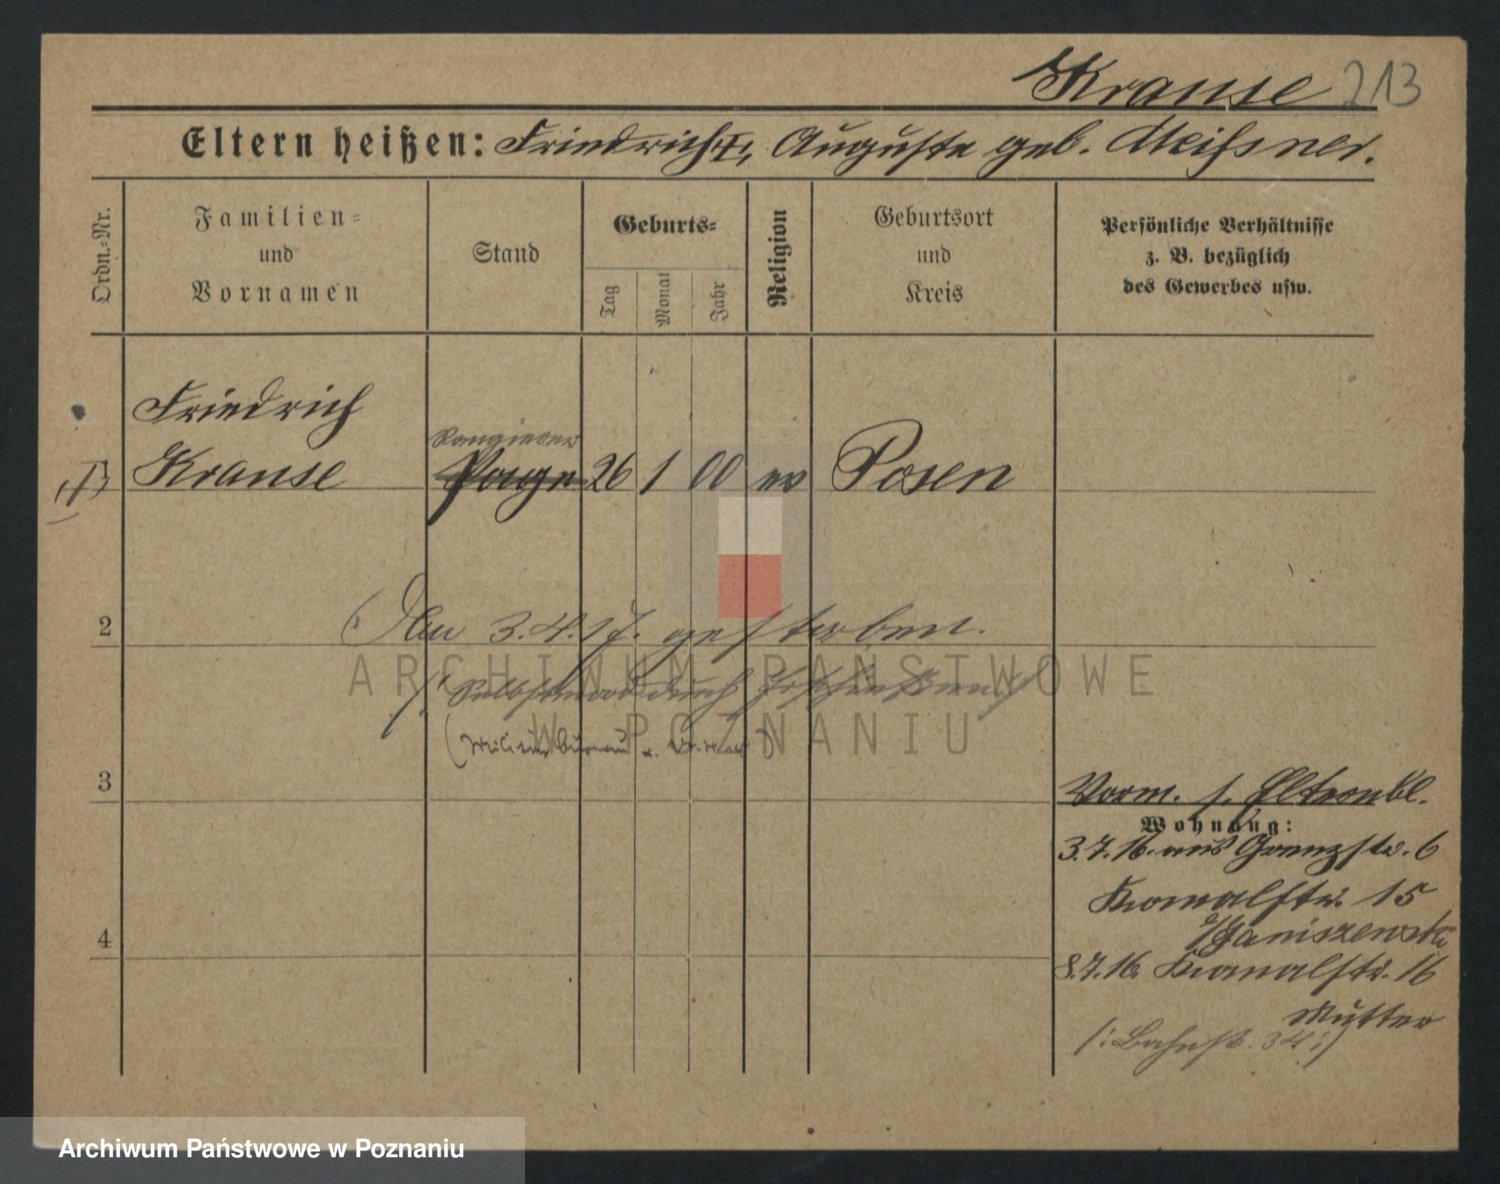 Krause 213
Eltern heißen: Friedrich †, Auguste geb. Meißner.
Ordn.-Nr.
Familien-
und
Vornamen
Stand
Geburts-
Tag
Monat
Jahr
Religion
Geburtsort
und
Kreis
Persönliche Verhältnisse
z. B. bezüglich
des Gewerbes usw.
Friedrich
Krause
Rangierer
Page 26 1 00 ev Posen
2
(Am 3.4.17. gestorben.
/: Selbstmord durch Erschießen :/
3
Vorm. s. Elternbl.
Wohnung:
3.7.16. aus Grenzstr. 6
Kronalstr. 15
b/Janiszewski
4
8.7.16. Kanalstr. 16
Mutter
/: Bahnst. 34 :/
ARCHIWUM PAŃSTWOWE
W POZNANIU
Archiwum Państwowe w Poznaniu